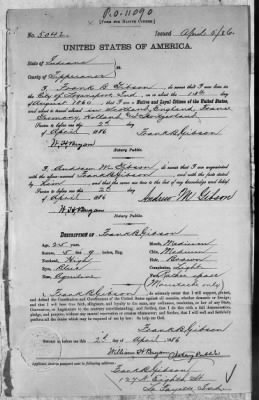 P.O-11090
[FORM FOR NATIVE CITIZEN.]
No. 5042. Issued April 5/86.
UNITED STATES OF AMERICA.
State of Indiana
County of Tippecanoe
I, Frank B Gibson do swear that I was born in
the City of Logansport Ind, on or about the
of August 1860; that I am a Native and Loyal Citizen of the United States,
and about to travel in Scotland, England, France
Germany, Holland & Switzerland
Sworn to before me this 2d day
of April 1886 Frank B Gibson
W. H. Bryan
Notary Public.
I, Andrew M Gibson do swear that I am acquainted
with the above named Frank B Gibson, and with the facts stated
by him and that the same are true to the best of my knowledge and belief.
Sworn to before me this 2d day
of April 1886 Andrew M Gibson
W. H. Bryan
Notary Public.
DESCRIPTION OF Frank B Gibson
Age, 25 years. Mouth, Medium
Stature, 5 feet 9 inches, Eng. Chin, Medium
Forehead, High Hair, Brown
Eyes, Blue Complexion, Light
Nose, Face,
(Moustach only)
I, Frank B Gibson, do solemnly swear that I will support, protect,
and defend the Constitution and Government of the United States against all enemies, whether domestic or foreign;
and that I will bear true faith, allegiance, and loyalty to the same, any ordinance, resolution, or law of any State,
Convention, or Legislature to the contrary notwithstanding; and further, that I do this with a full determination,
pledge, and purpose, without any mental reservation or evasion whatsoever; and further, that I will well and faithfully
perform all the duties which may be required of me by law: So help me God.
Frank B Gibson
Sworn to before me this 2d day of April 1886
William H Bryan Notary Public
Applicant desires passport sent to following address:
Frank B Gibson
127 N Eighth St
La Fayette Ind